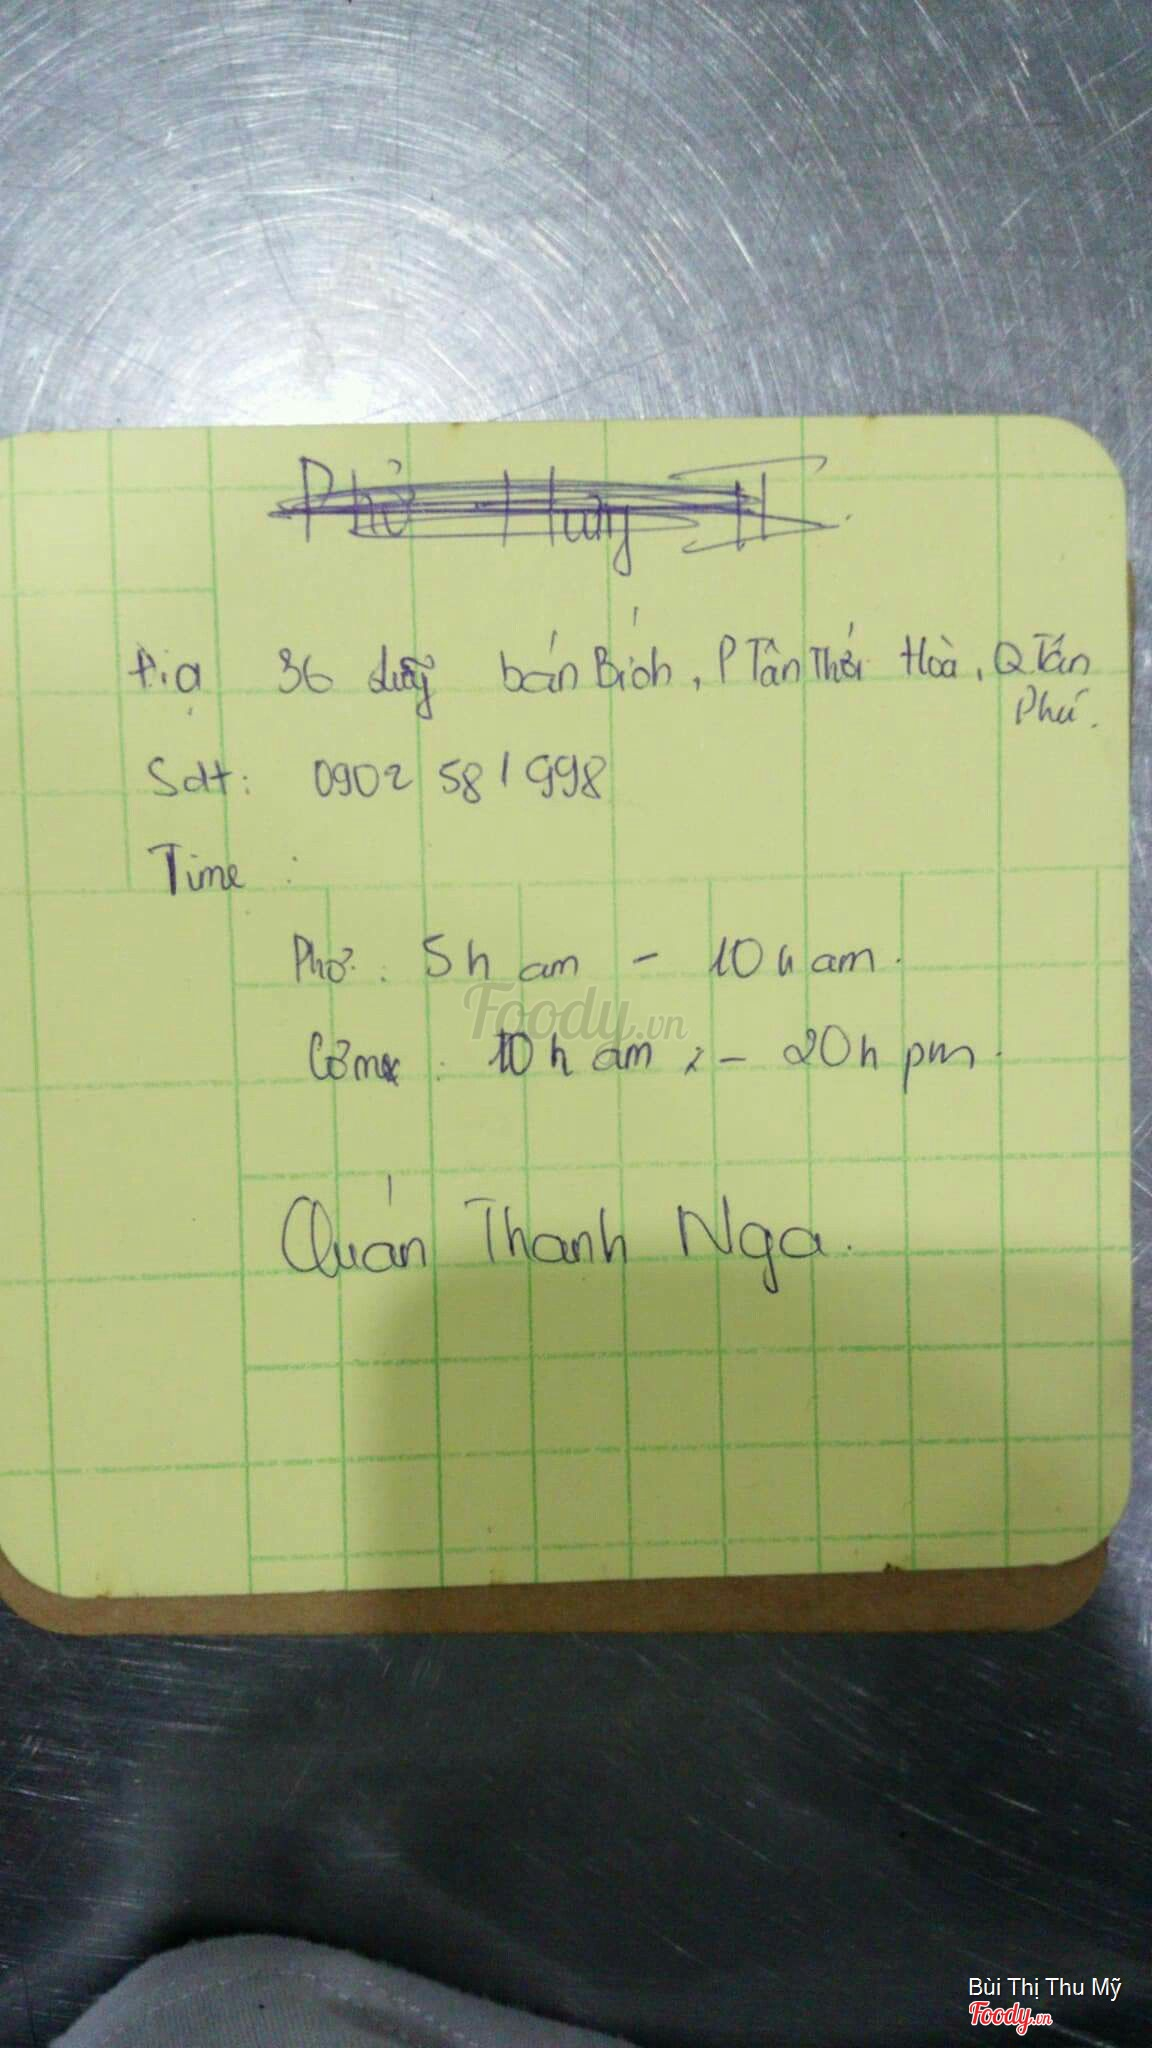 Phở Hưng II
Địa 36 lũy bán Bích, P Tân Thới Hoà, Q Tân
Phú.
Sdt: 0902 581 998
Time :
Phở : 5h am - 10h am.
Foody.vn
Cơm : 10h am : - 20h pm.
Quán Thanh Nga.
Bùi Thị Thu Mỹ
Foody.vn